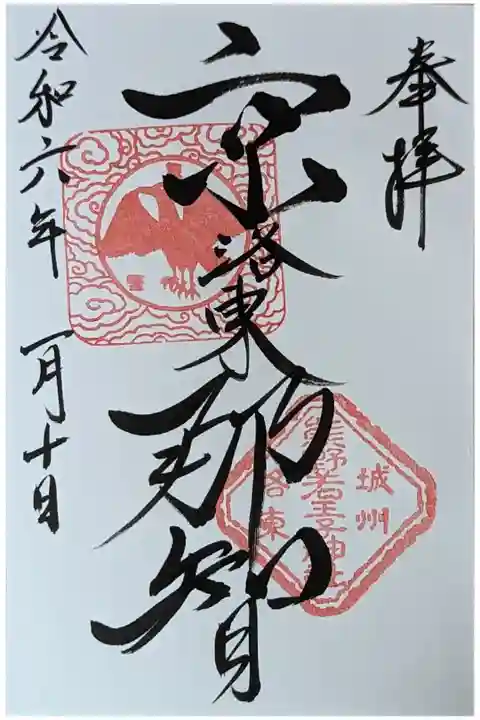 奉拝
京洛東那智
城州
熊野若王子神社
洛東
令和六年 一月十日